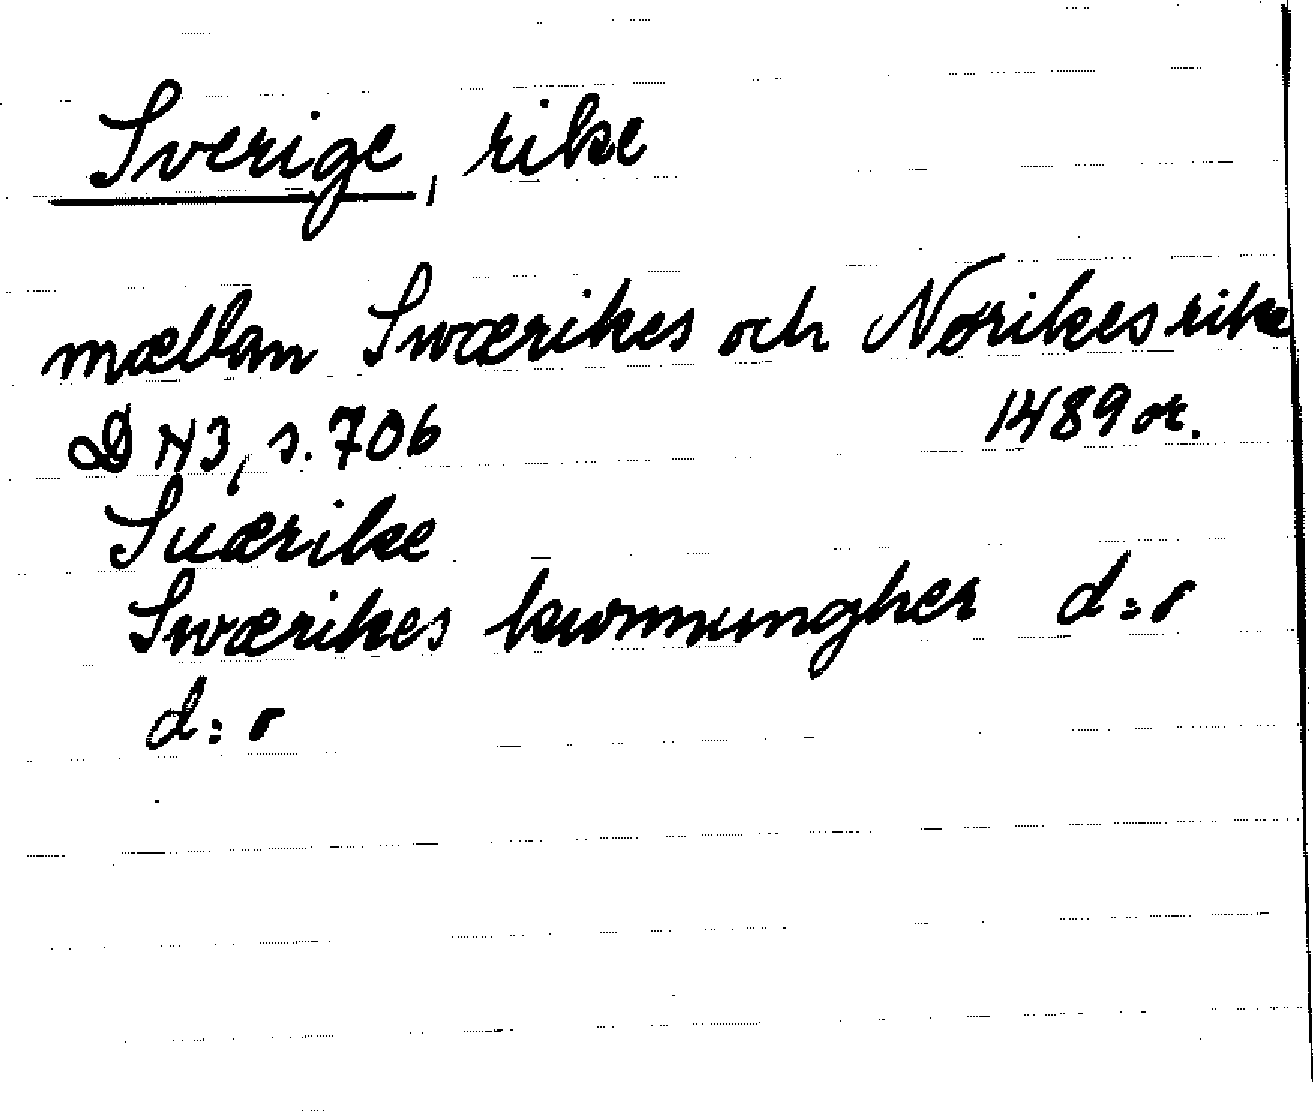 Sverige, rike
mællan Swærikes och Norikes rike
DN3, s. 706 1489 or.
Suærike
Swærikes kwnnungher d:o
d:o